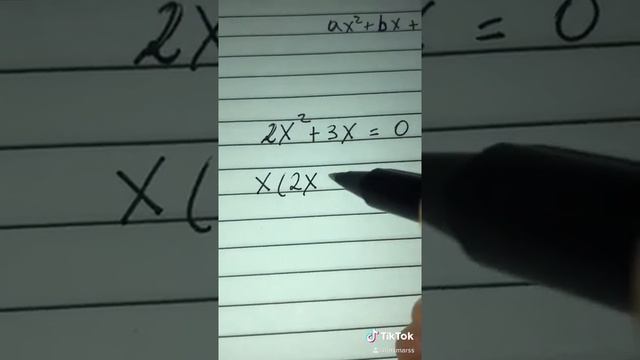 ax² + bx +
2x² + 3x = 0
x(2x
TikTok